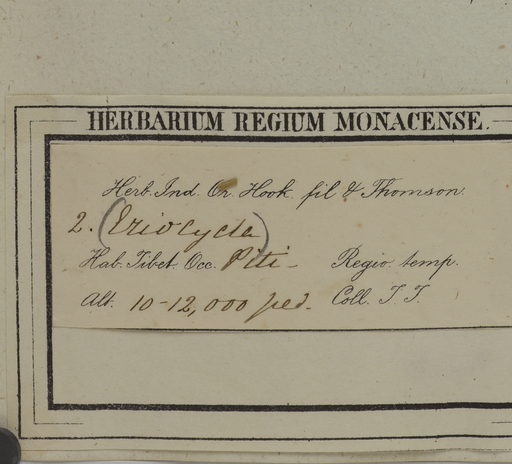 HERBARIUM REGIUM MONACENSE.
Herb. Ind. Or. Hook. fil & Thomson.
2. (Eriocycla)
Hab. Tibet. Occ. Piti - Regio. temp.
Alt. 10-12,000 ped. Coll. T. T.